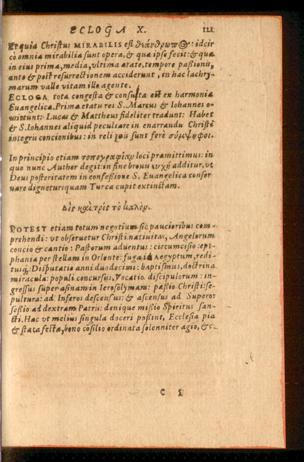 ECLOGA X. 121
Et quia Christus MIRABILIS est θεάνθρωπος: idcir
cò omnia mirabilia sunt opera, & quæ ipse fecit: & quæ
in eius prima, media, ultima ætate, tempore passionis,
anto & post resurrectionem acciderunt, in hac lachry-
marum valle vitam illo agente.
ECLOGA tota congesta & consulta est ex harmonia
Euangelica. Prima ætati res S. Marcus & Iohannes o-
mittunt: Lucas & Matthæus fideliter tradunt: Habet
& S. Iohannes aliquid peculiare in enarrandis Christi
integris concionibus: in reliquis sunt ferè σύμψηφοι.
In principio etiam τοπογραφίαν loci præmittimus: in
quo nunc Author degit: in fine brevis εὐχὴ additur, ut
Deus posteritatem in confessione S. Euangelica conser-
vare digneturquam Turca cupit extinctam.
POTEST etiam totum negotium sic paucioribus com-
prehendi: ut obseruetur Christi natiuitas, Angelorum
concio & cantio: Pastorum aduentus: circumcisio: epi-
phania per stellam in Oriente: fuga in Ægyptum, redi-
tusq; Disputatio anni duodecimi: baptismus, doctrina
miracula: populi concursus, Vocatio discipulorum: in-
gressus super asinam in Ierosolymam: passio Christi: se-
pultura: ad Inferos descensus: & ascensus ad Superos
sessio ad dextram Patris: denique missio Spiritus san-
cti. Hæc ut melius singula doceri possint, Ecclesia pia
& stata festa, bono cōsilio ordinata solenniter agit, &c.